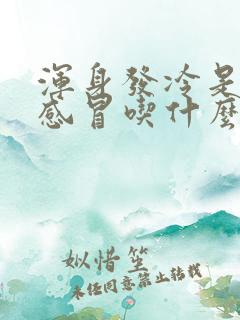 渾身發冷是
感冒喫什麼
姒惜笙
未經同意禁止轉載